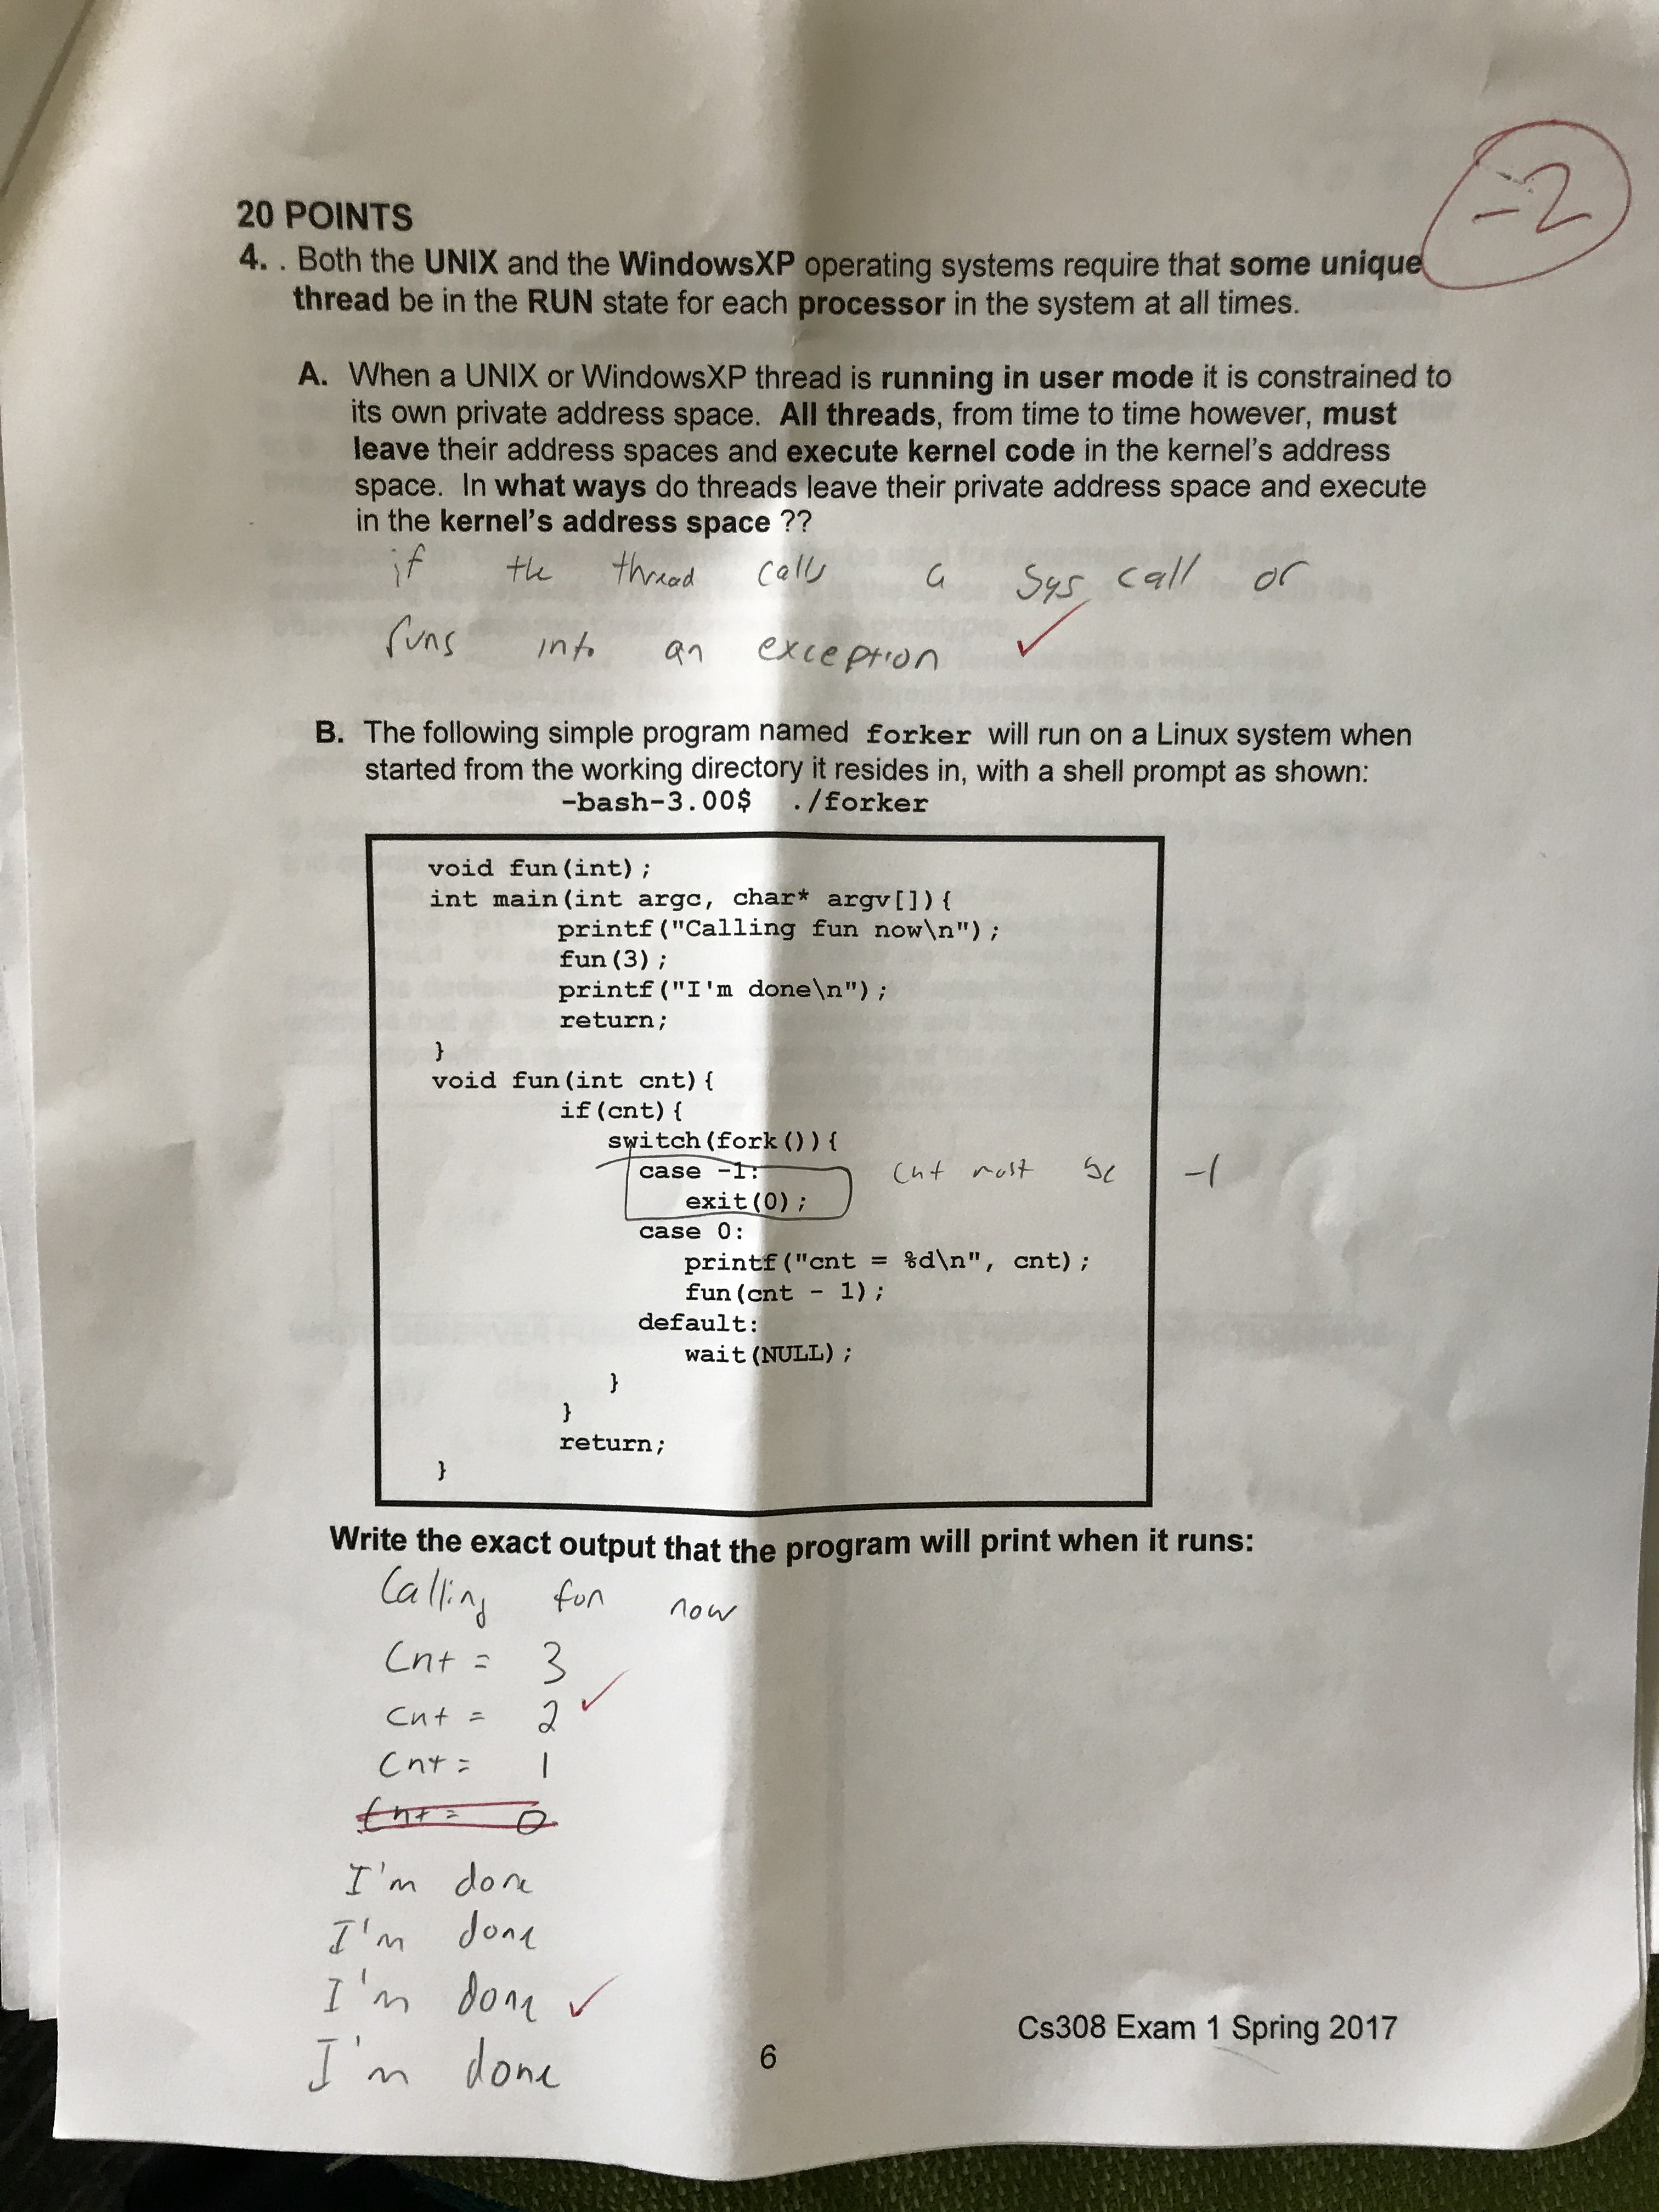 -2
20 POINTS
4. . Both the UNIX and the WindowsXP operating systems require that some unique
thread be in the RUN state for each processor in the system at all times.
A. When a UNIX or WindowsXP thread is running in user mode it is constrained to
its own private address space. All threads, from time to time however, must
leave their address spaces and execute kernel code in the kernel's address
space. In what ways do threads leave their private address space and execute
in the kernel's address space ??
if the thread calls a sys call or
runs into an exception
B. The following simple program named forker will run on a Linux system when
started from the working directory it resides in, with a shell prompt as shown:
-bash-3.00$ ./forker
void fun(int);
int main(int argc, char* argv[]){
printf("Calling fun now\n");
fun(3);
printf("I'm done\n");
return;
}
void fun(int cnt){
if(cnt){
switch(fork()){
case -1: Cnt must be -1
exit(0);
case 0:
printf("cnt = %d\n", cnt);
fun(cnt - 1);
default:
wait(NULL);
}
}
return;
}
Write the exact output that the program will print when it runs:
Calling fun now
Cnt = 3
Cnt = 2
Cnt = 1
Cnt = 0
I'm done
I'm done
I'm done
I'm done
Cs308 Exam 1 Spring 2017
6